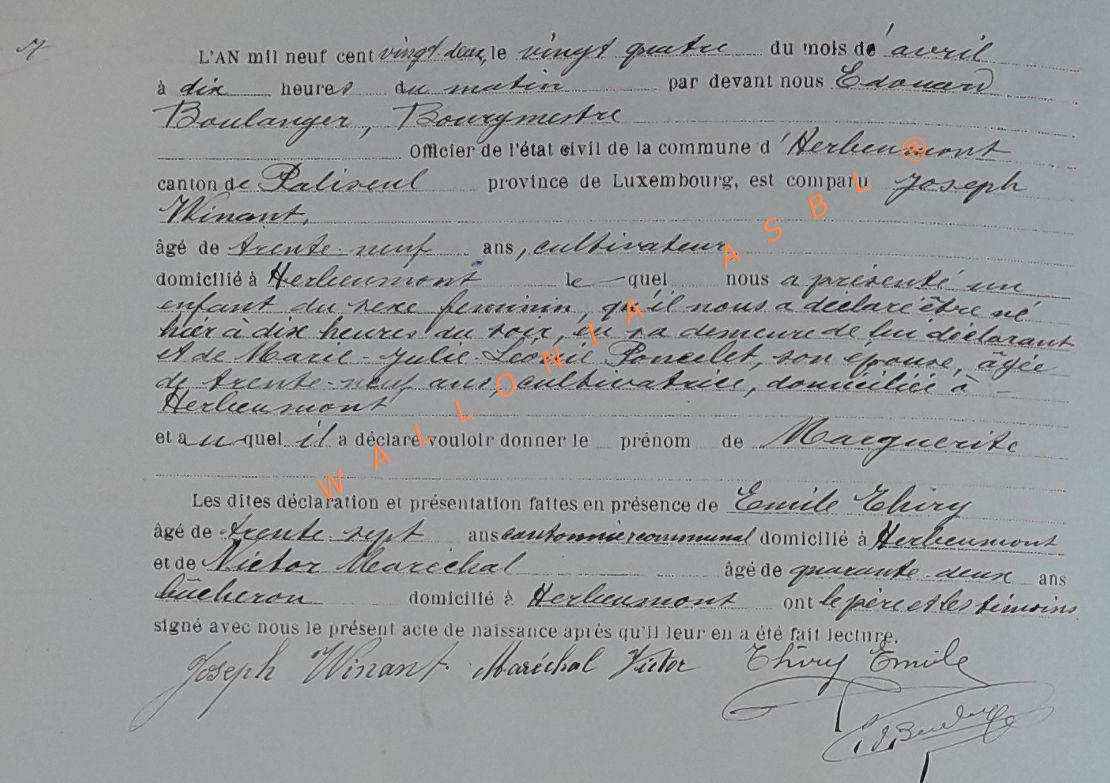 L'AN mil neuf cent vingt deux, le vingt quatre du mois d'avril
à dix heures du matin par devant nous Edouard
Boulanger, Bourgmestre
Officier de l'état civil de la commune d'Herbeumont
canton de Paliseul province de Luxembourg, est comparu Joseph
Winant,
âgé de trente-neuf ans, cultivateur
domicilié à Herbeumont lequel nous a présenté un
enfant du sexe féminin, qu'il nous a déclaré être né
hier à dix heures du soir, en sa demeure de lui déclarant
et de Marie-Julie Léonie Poncelet, son épouse, âgée
de trente-neuf ans, cultivatrice, domiciliée à
Herbeumont
et auquel il a déclaré vouloir donner le prénom de Marguerite
Les dites déclaration et présentation faites en présence de Emile Thiry
âgé de trente sept ans cantonnier communal domicilié à Herbeumont
et de Victor Maréchal âgé de quarante deux ans
bûcheron domicilié à Herbeumont ont le père et les témoins
signé avec nous le présent acte de naissance après qu'il leur en a été fait lecture.
Joseph Winant. Maréchal Victor Thiry Emile
Ed Boulanger
WALLONIA ASBL ®